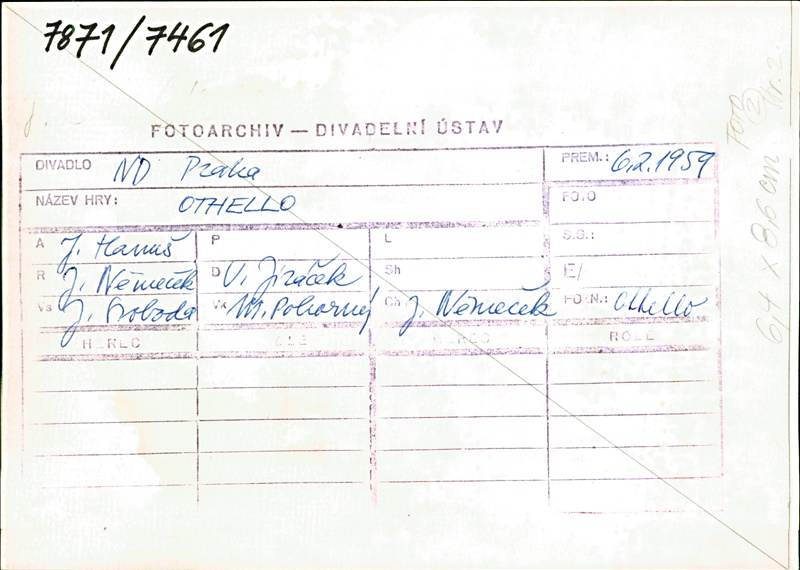 7871/7461
FOTOARCHIV — DIVADELNÍ ÚSTAV
DIVADLO ND Praha
PREM.: 6.2.1959
NÁZEV HRY: OTHELLO
FOTO
A J. Hanuš P L S.G.:
R J. Němeček D V. Jiráček Sh E/
Vs J. Svoboda Vk M. Pokorný Ch J. Němeček POZN.: Othello
HEREC ROLE HEREC ROLE
Foto
Nr. 2
6,4 x 8,6 cm